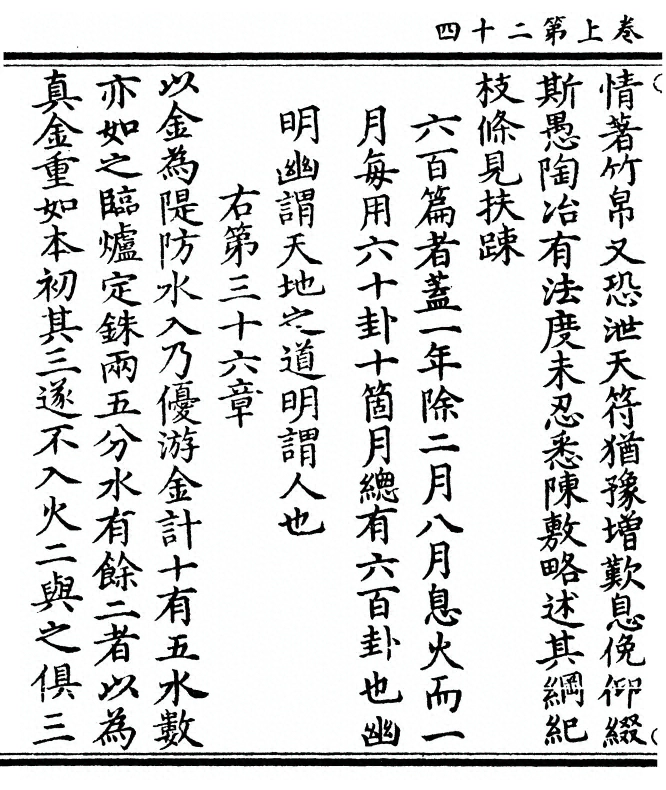 卷上第二十四
情著竹帛又恐泄天符猶豫增歎息俛仰綴
斯愚陶冶有法度未忍悉陳敷略述其綱紀
枝條見扶踈
六百篇者蓋一年除二月八月息火而一
月每用六十卦十箇月總有六百卦也幽
明幽謂天地之道明謂人也
右第三十六章
以金為隄防水入乃優游金計十有五水數
亦如之臨爐定銖兩五分水有餘二者以為
真金重如本初其三遂不入火二與之俱三